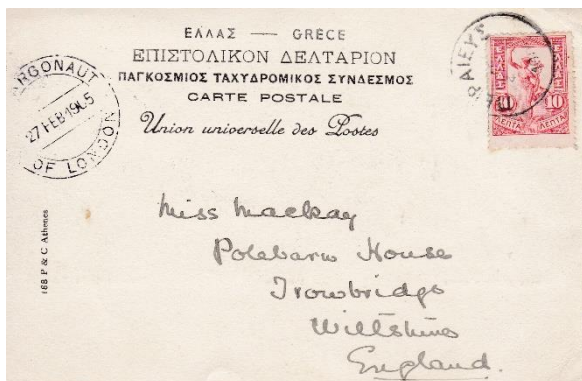 ΕΛΛΑΣ — GRÈCE
ΕΠΙΣΤΟΛΙΚΟΝ ΔΕΛΤΑΡΙΟΝ
ΠΑΓΚΟΣΜΙΟΣ ΤΑΧΥΔΡΟΜΙΚΟΣ ΣΥΝΔΕΣΜΟΣ
CARTE POSTALE
Union universelle des Postes
ARGONAUT
27 FEB 1905
OF LONDON
ΕΛΛΑΣ
10 10
ΛΕΠΤΑ ΛΕΠΤΑ
168 P & C Athenes
Miss Mackay
Polebarn House
Trowbridge
Wiltshire
England.